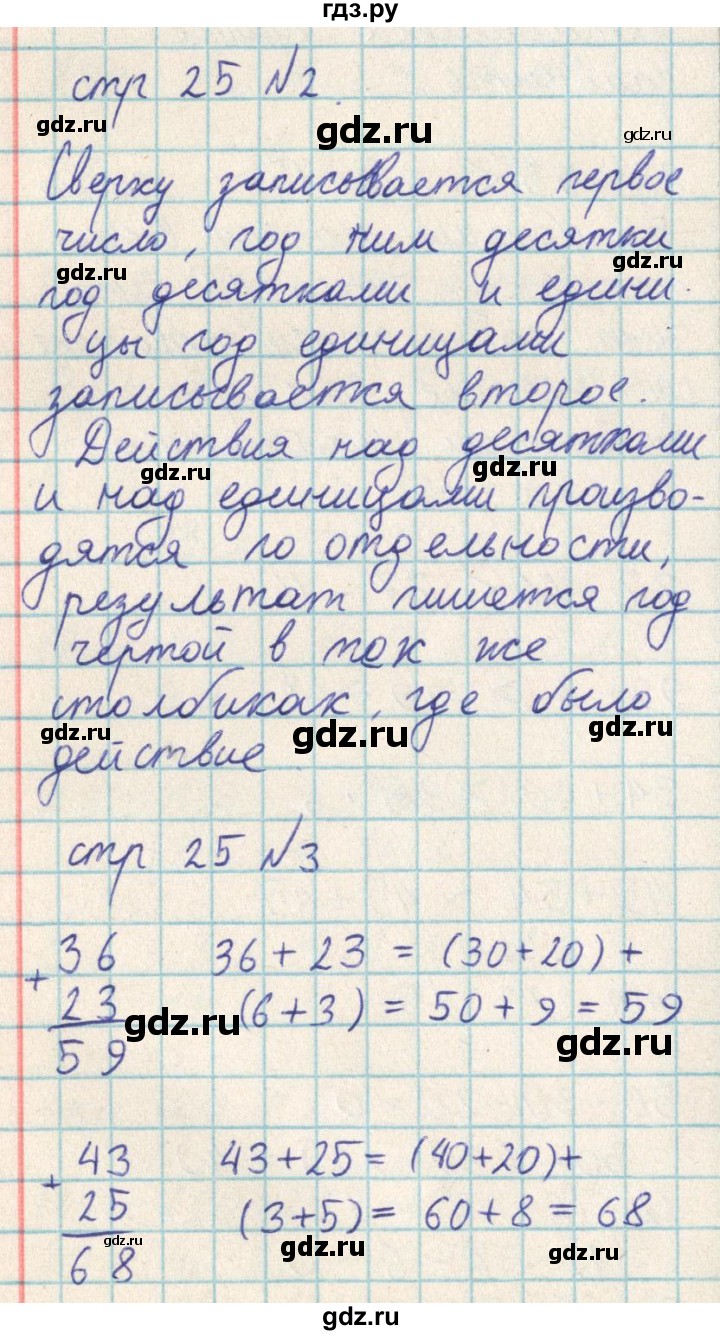 гдз.ру
стр 25 №2.
gdz.ru
gdz.ru
gdz.ru
Сверху записывается первое
число, под ним десятки
gdz.ru
gdz.ru
под десятками и едини
цы под единицами
записывается второе.
gdz.ru
Действия над десятками
gdz.ru
gdz.ru
и над единицами произво-
дятся по отдельности,
результат пишется под
чертой в тех же
столбиках, где было
gdz.ru
gdz.ru
gdz.ru
действие.
стр 25 №3
36 36 + 23 = (30+20) +
+
23 (6+3) = 50 + 9 = 59
gdz.ru
gdz.ru
59
43 43+25= (40+20)+
+
25 (3+5)= 60+8 = 68
gdz.ru
gdz.ru
gdz.ru
68
gdz.ru